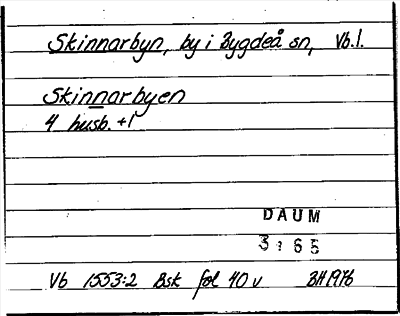 Skinnarbyn, by i Bygdeå sn, Vb.l.
Skinnarbyen
4 husb. +1
DAUM
3165
Vb 1553:2 Bsk fol 40 v BH 1976